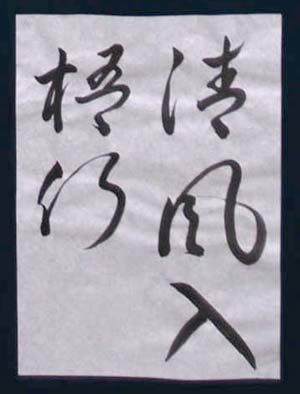 清風入
梧竹